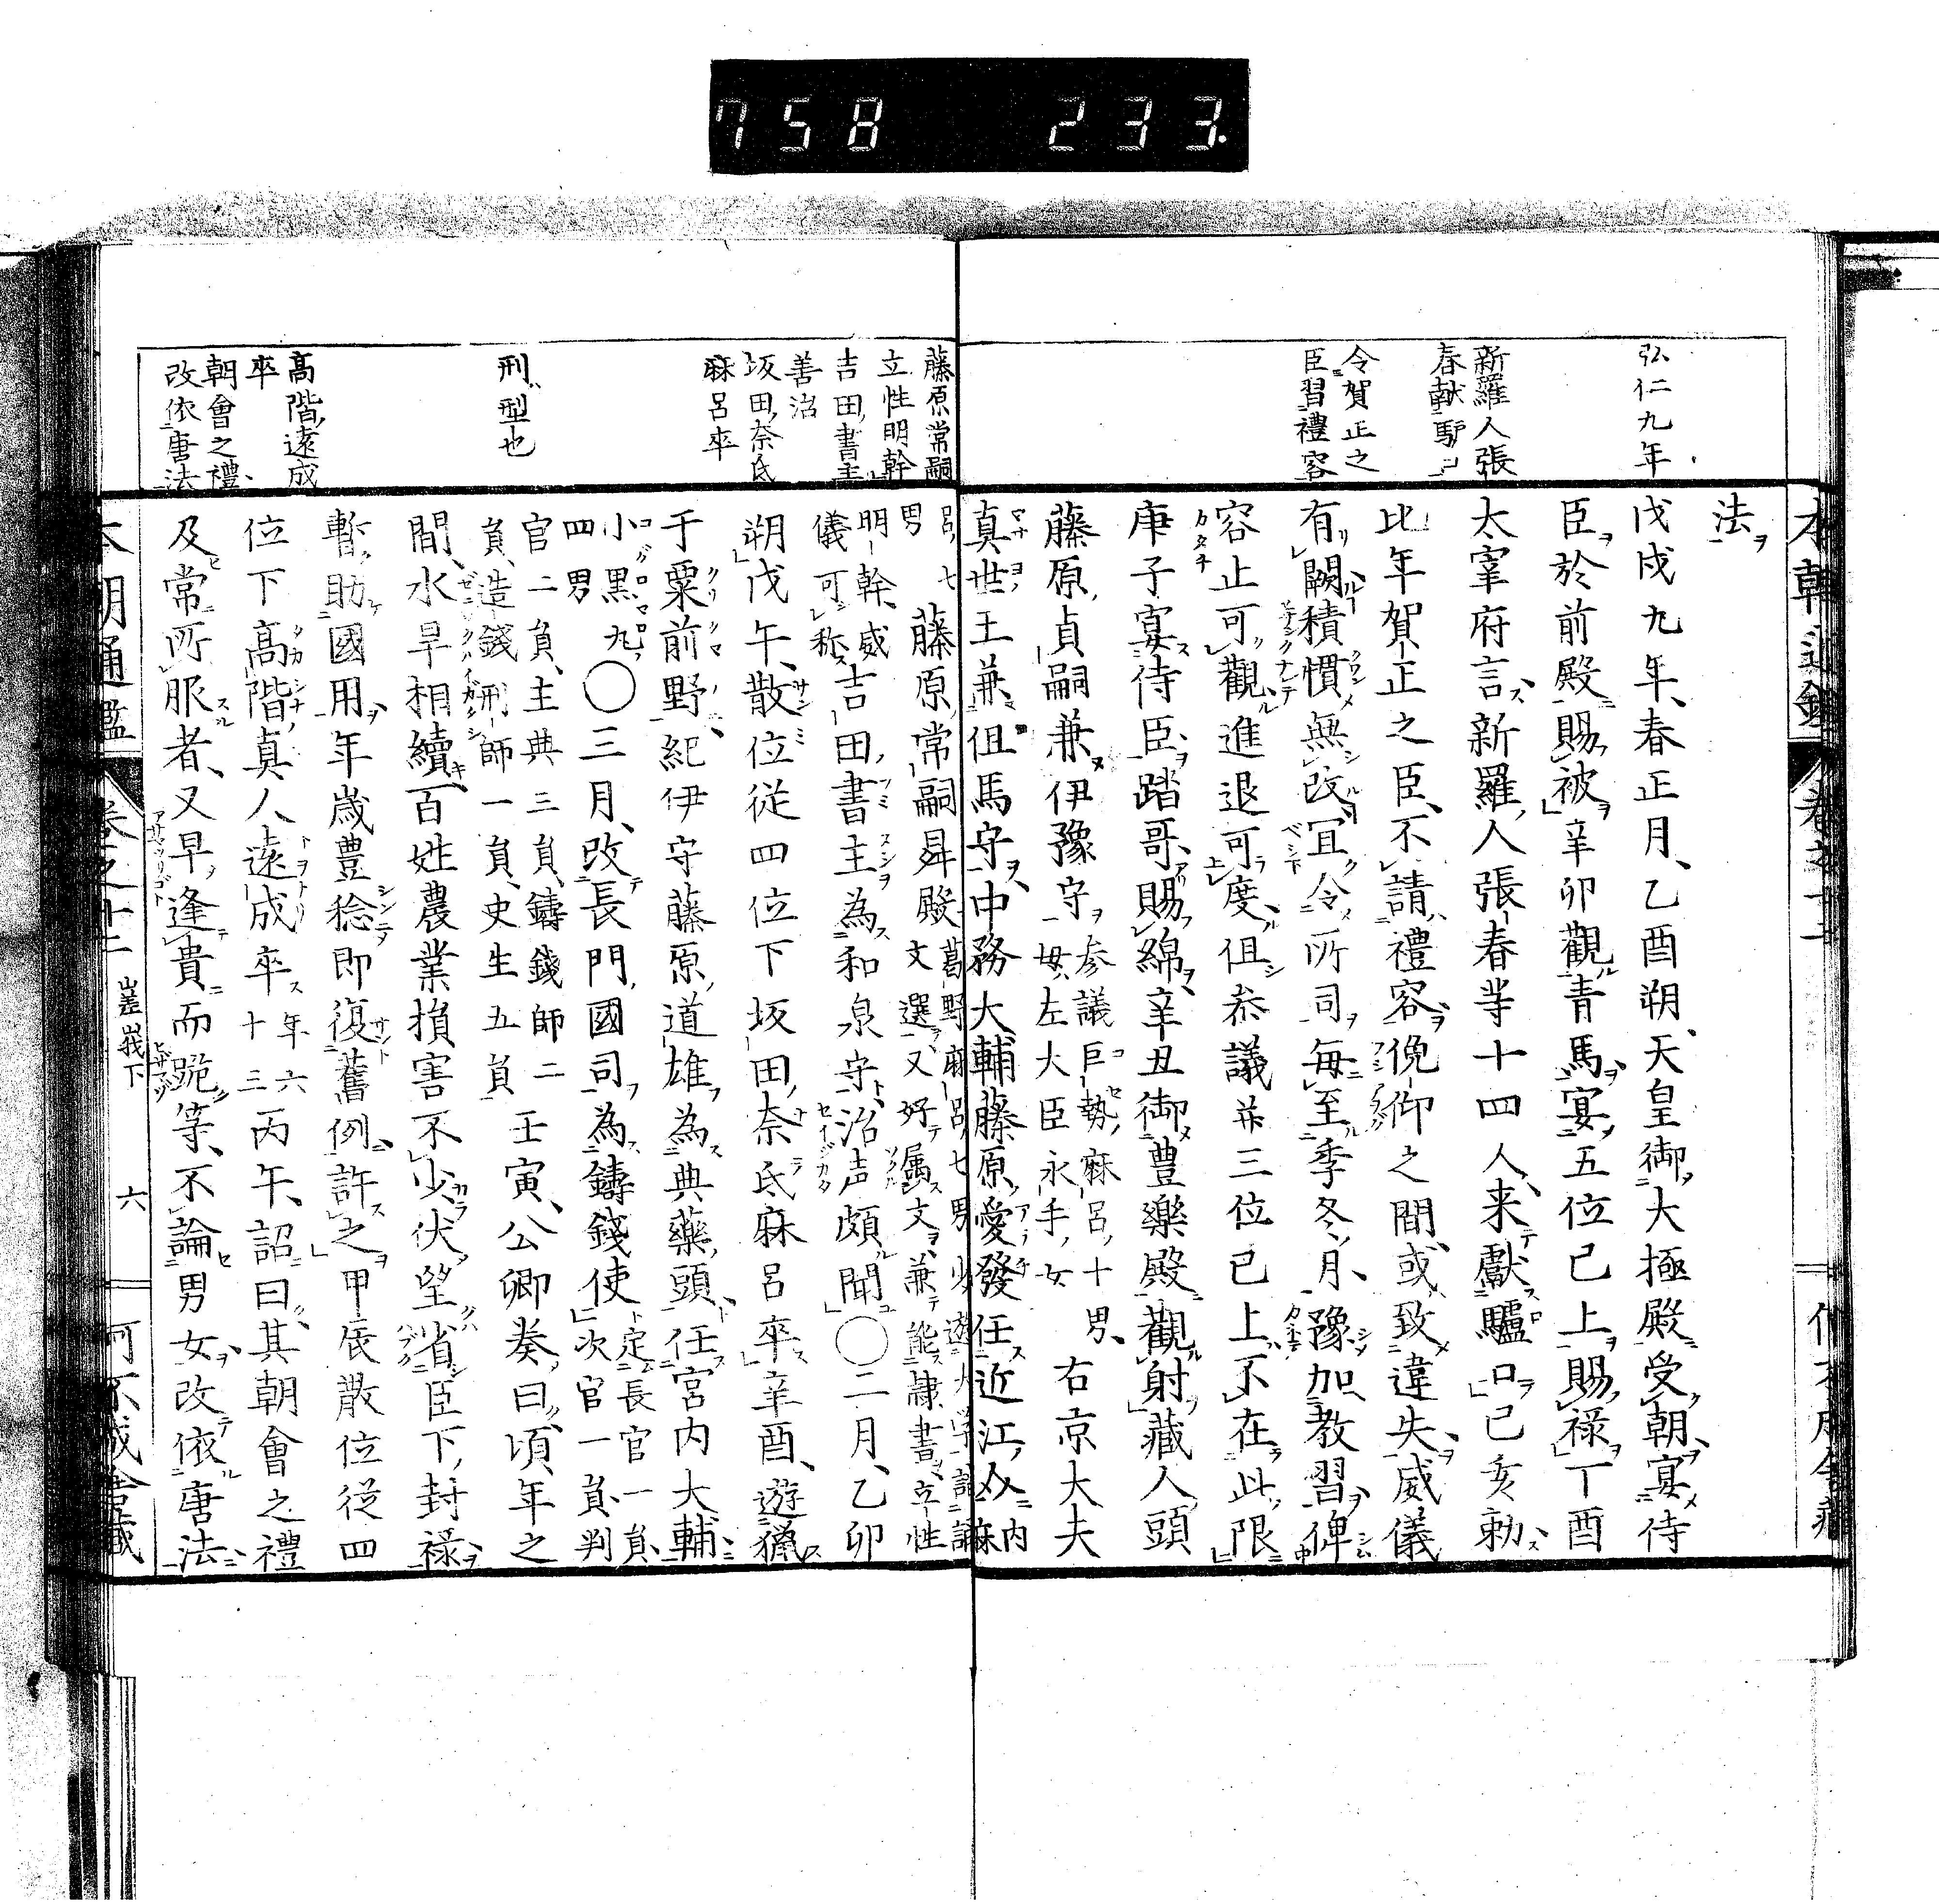 758 233.
弘仁九年
新羅人張
春献馿
令賀正之
臣習禮容
法
戊戌九年、春正月、乙酉朔、天皇御大極殿受朝、宴侍
臣於前殿賜被辛卯觀青馬、宴五位已上賜禄丁酉
太宰府言、新羅人張春等十四人、来獻驢四己亥勅
比年賀正之臣、不請禮容、俛仰之間、或致違失、威儀
有闕積慣無改、宜令所司毎至季冬月、豫加教習俾
容止可觀、進退可度、但叅議并三位已上、不在此限
庚子宴侍臣、踏哥、賜綿、辛丑御豊樂殿觀射、藏人頭
藤原貞嗣兼伊豫守
参議巨勢麻呂十男、
母、左大臣永手女
右京大夫
真世王兼但馬守、中務大輔藤原愛發任近江
内
麻
藤原常嗣
立性明幹
吉田書主
善治
坂田奈氐
麻呂卒
刑型也
高階遠成
卒
朝會之禮
改依唐法
呂七
男
藤原常嗣昇殿
葛野麻呂七男少遊大学
文選又好属文兼能隷書立性
明幹威
儀可称
吉田書主為和泉守、治声頗聞○二月、乙卯
朔戊午、散位從四位下坂田奈氐麻呂卒辛酉、遊獵
于粟前野紀伊守藤原道雄為典藥頭任宮内大輔
小黒丸
四男
○三月、改長門國司為鑄錢使
定長官一負判
次官一負、判
官二負、主典三負、鑄錢師二
負、造錢刑師一負、史生五負
壬寅、公卿奏曰、頃年之
間、水旱相續百姓農業損害不少伏望省臣下封禄
暫助國用、年歳豊稔即復舊例許之甲辰散位從四
位下高階真人遠成卒
年六
十三
丙午、詔曰、其朝會之禮
及常所服者、又早逢貴而跪等、不論男女改依唐法
本朝通鑑 卷之十二 嵯峩下 六